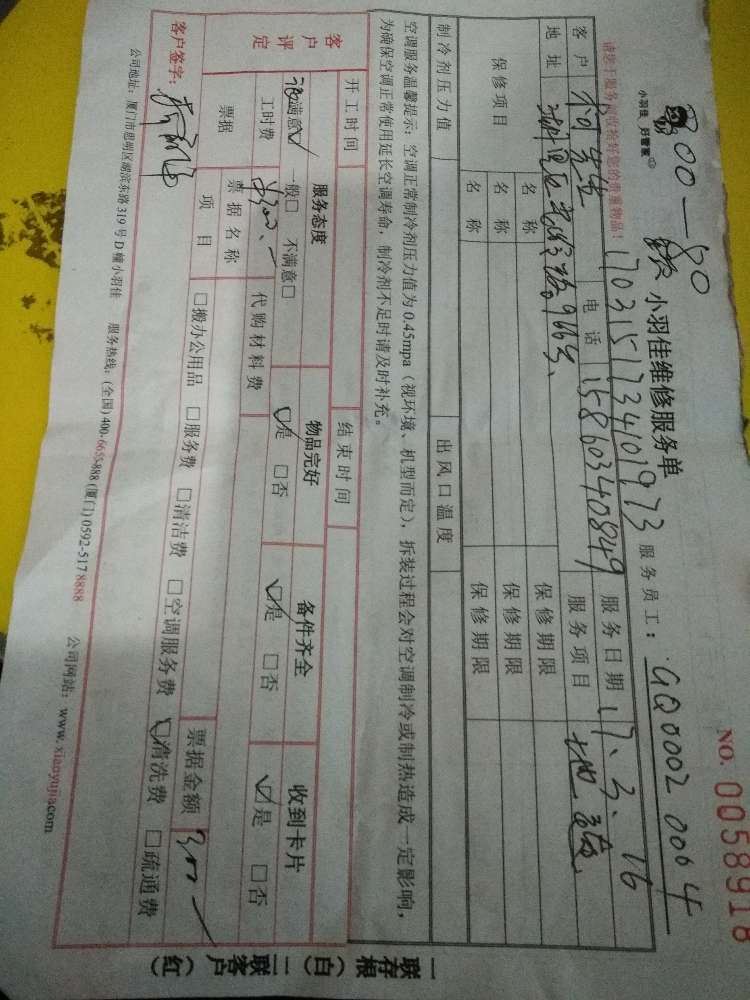 NO. 0058918
800-80
小羽佳 好管家
小羽佳维修服务单
服务员工: GQ0002 0064
请您于服务前收检好您的贵重物品!
1703151734101973
客户 柯先生 电话 15860340849 服务日期 17.3.16
地址 966号 服务项目 地毯
保修项目 名称 保修期限
名称 保修期限
名称 保修期限
制冷剂压力值 出风口温度
空调服务温馨提示: 空调正常制冷剂压力值为 0.45mpa (视环境、机型而定), 拆装过程会对空调制冷或制热造成一定影响,
为确保空调正常使用延长空调寿命, 制冷剂不足时请及时补充。
开工时间 结束时间
客户评定 服务态度 物品完好 备件齐全 收到卡片
满意 一般 不满意 是 否 是 否 是 否
工时费 300 代购材料费
票据 票据名称 票据金额 300
项目 搬办公用品 服务费 清洁费 空调服务费 清洗费 疏通费
客户签字:
公司地址: 厦门市思明区湖滨东路 319 号 D 幢小羽佳 服务热线: (全国) 400-6655-888 (厦门) 0592-5178888 公司网站: www.xiaoyujia.com
一联存根 (白) 二联客户 (红)